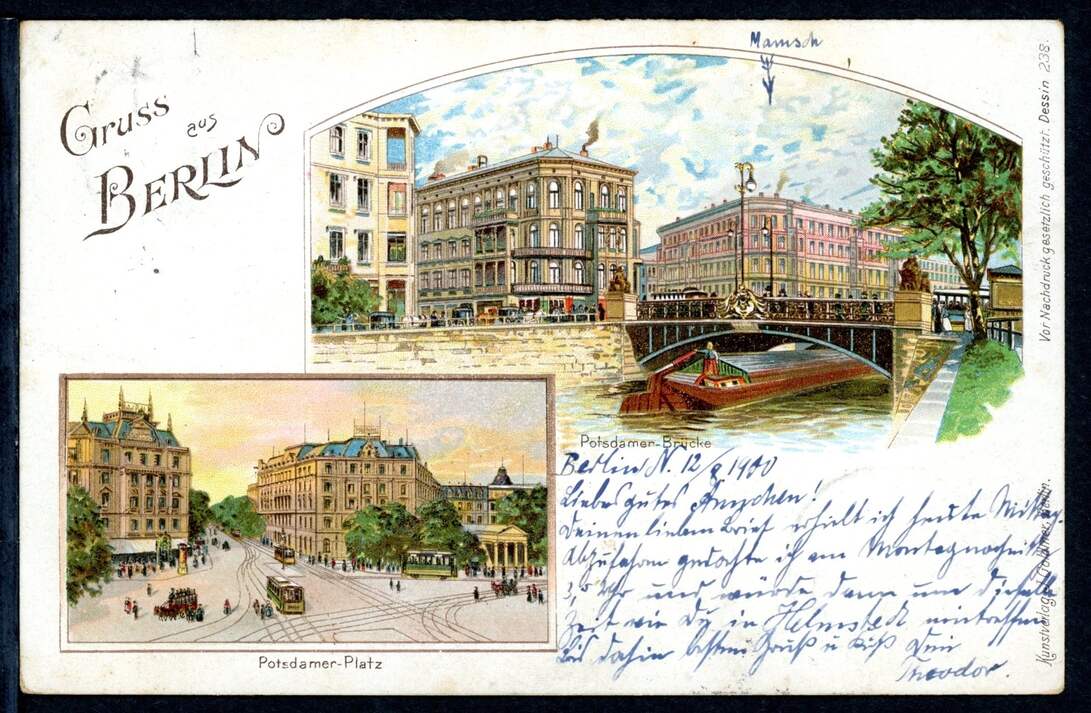 Mamsch
Gruss
aus
BERLIN
Vor Nachdruck gesetzlich geschützt. Dessin 238.
Potsdamer-Brücke
Berlin N. 12/8 1900
Liebes gutes
Deinen lieben Brief erhielt ich heute Mittag.
Abzufahren gedachte ich am Montagnachmittag
3,5 Uhr und würde dann um dieselbe
Zeit wie Du in Helmstedt eintreffen
Bis dahin besten Gruß u Kuß Dein
Theodor.
Potsdamer-Platz
Kunstverlag J. Goldiner, Berlin.